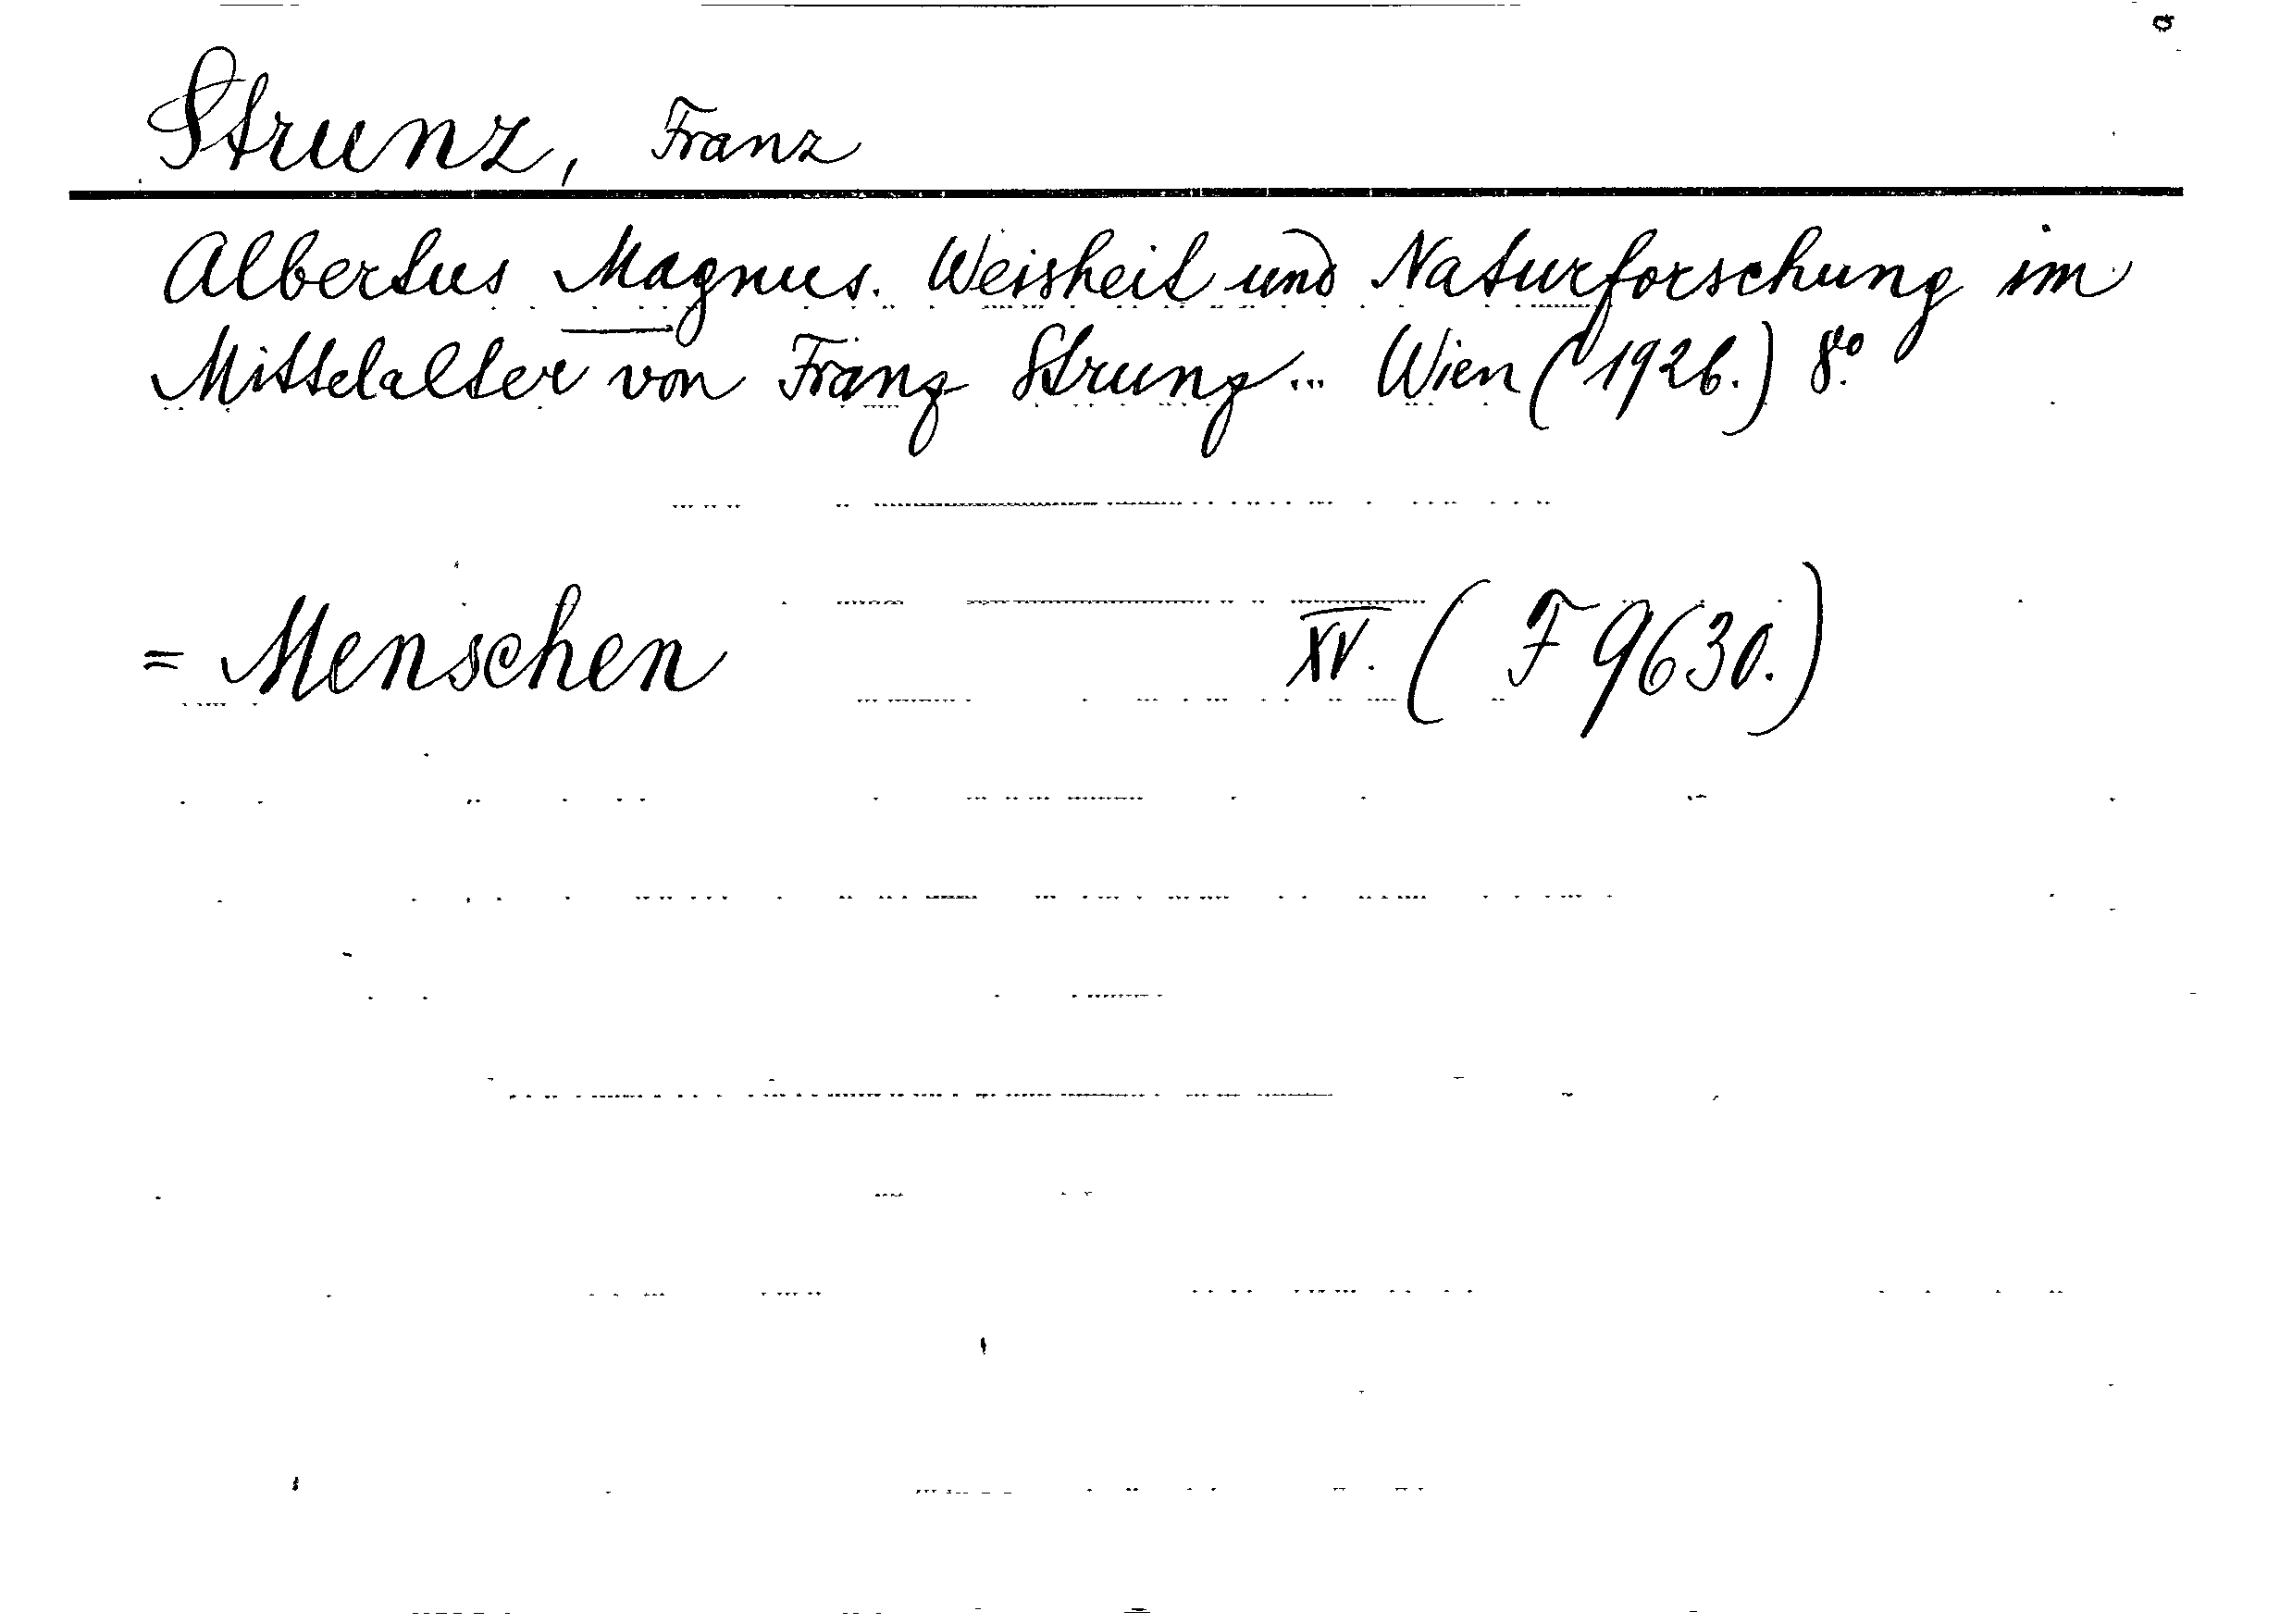 Strunz, Franz
Albertus Magnus. Weisheit und Naturforschung im
Mittelalter von Franz Strunz... Wien (1926.) 8.°
= Menschen XV. (F 9630.)